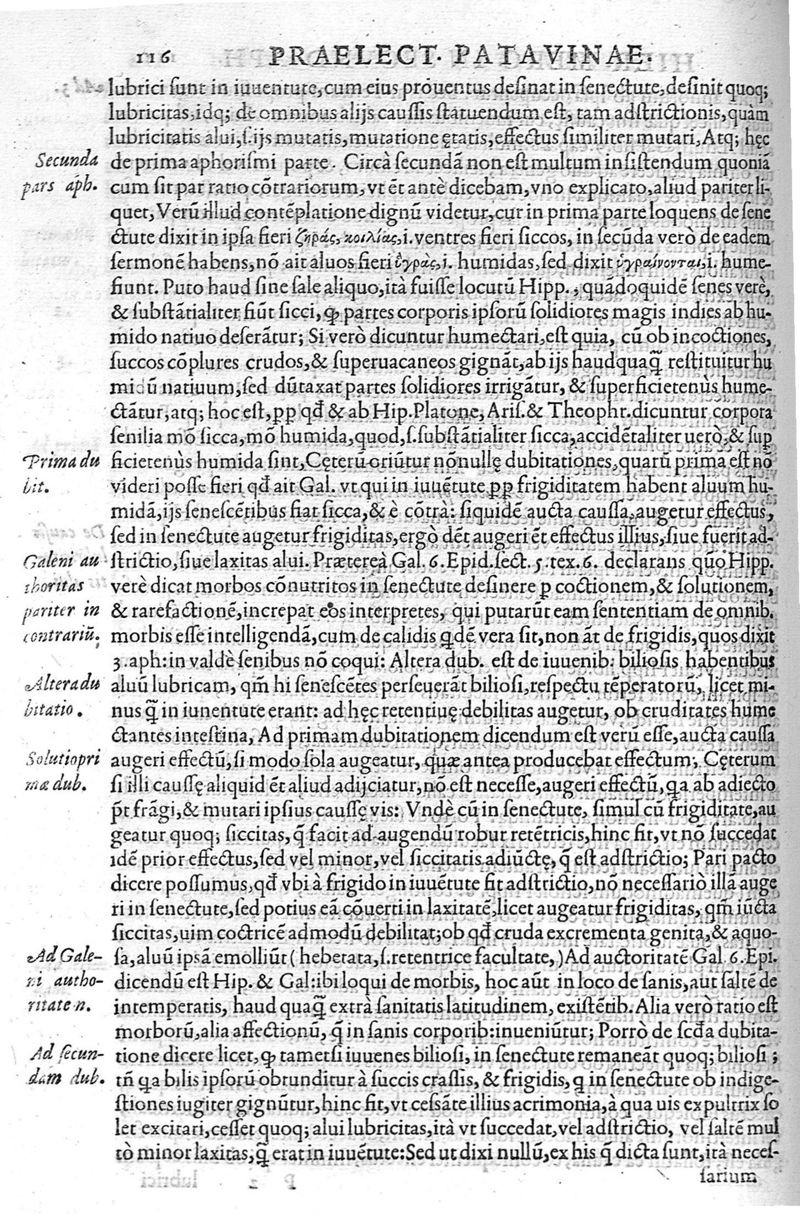 116 PRAELECT. PATAVINAE.
lubrici sunt in iuuentute, cum eius prouentus desinat in senectute, desinit quoq;
lubricitas, idq; de omnibus alijs caussis statuendum est, tam adstrictionis, quàm
lubricitatis alui, s. ijs mutatis, mutatione ętatis, effectus similiter mutari, Atq; hęc
Secunda
pars aph.
de prima aphorismi parte. Circà secundã non est multum insistendum quoniã
cum sit par ratio cõtrariorum, vt ẽt antè dicebam, vno explicato, aliud pariter li-
quet, Verũ illud contẽplatione dignũ videtur, cur in prima parte loquens de sene
ctute dixit in ipsa fieri ζηράς, κοιλίας, i. ventres fieri siccos, in secũda verò de eadem
sermonẽ habens, nõ ait aluos fieri ὑγράς, i. humidas, sed dixit ὑγραίνονται, i. hume-
fiunt. Puto haud sine sale aliquo, ità fuisse locutũ Hipp., quãdoquidẽ senes verè,
& substãtialiter fiũt sicci, ꝙ partes corporis ipsorũ solidiores magis indies ab hu-
mido natiuo deserãtur; Si verò dicuntur humectari, est quia, cũ ob incoctiones,
succos cõplures crudos, & superuacaneos gignãt, ab ijs haudquaq̃ restituitur hu
midũ natiuum, sed dũtaxat partes solidiores irrigãtur, & superficietenùs hume-
ctãtur, atq; hoc est, pp qđ & ab Hip. Platone, Aris. & Theophr. dicuntur corpora
senilia mõ sicca, mõ humida, quod, s. substãtialiter sicca, accidẽtaliter uerò, & sup
Prima du
bit.
ficietenùs humida sint, Cęterũ oriũtur nõnullę dubitationes, quarũ prima est nõ
videri posse fieri qđ ait Gal. vt qui in iuuẽtute pp frigiditatem habent aluum hu-
midã, ijs senescẽtibus fiat sicca, & è cõtrà: siquidẽ aucta caussa, augetur effectus,
sed in senectute augetur frigiditas, ergò dẽt augeri ẽt effectus illius, siue fuerit ad-
Galeni au
thoritas
pariter in
contrariũ.
strictio, siue laxitas alui. Prætereà Gal. 6. Epid. sect. 5. tex. 6. declarans quõ Hipp.
verè dicat morbos cõnutritos in senectute desinere p coctionem, & solutionem,
& rarefactionẽ, increpat eos interpretes, qui putarũt eam sententiam de omnib.
morbis esse intelligendã, cum de calidis qdẽ vera sit, non ãt de frigidis, quos dixit
3. aph: in valdè senibus nõ coqui: Altera dub. est de iuuenib. biliosis habentibus
Altera du
bitatio.
aluũ lubricam, qm̃ hi senescẽtes perseuerãt biliosi, respectu tẽperatorũ, licet mi-
nus q̃ in iunentute erant: ad hęc retentiuę debilitas augetur, ob cruditates hume
ctantes intestina, Ad primam dubitationem dicendum est verũ esse, aucta caussa
Solutio pri
mæ dub.
augeri effectũ, si modo sola augeatur, quæ antea producebat effectum; Cęterum
si illi caussę aliquid ẽt aliud adijciatur, nõ est necesse, augeri effectũ, qa ab adiecto
p̃t frãgi, & mutari ipsius caussę vis: Vndè cũ in senectute, simul cũ frigiditate, au
geatur quoq; siccitas, q̃ facit ad augendũ robur retẽtricis, hinc fit, vt nõ succedat
idẽ prior effectus, sed vel minor, vel siccitatis adiũctę, q̃ est adstrictio; Pari pacto
dicere possumus, qđ vbi à frigido in iuuẽtute fit adstrictio, nõ necessariò illã auge
ri in senectute, sed potius eã cõuerti in laxitatẽ, licet augeatur frigiditas, qm̃ iũcta
siccitas, uim coctricẽ admodũ debilitat; ob qđ cruda excrementa genita, & aquo-
Ad Gale-
ni autho-
ritatem.
sa, aluũ ipsã emolliũt (hebetata, s. retentrice facultate,) Ad auctoritatẽ Gal 6. Epi.
dicendũ est Hip. & Gal: ibi loqui de morbis, hoc aũt in loco de sanis, aut saltẽ de
intemperatis, haud quaq̃ extrà sanitatis latitudinem, existẽtib. Alia verò ratio est
morborũ, alia affectionũ, q̃ in sanis corporib: inueniũtur; Porrò de scđa dubita-
Ad secun-
dam dub.
tione dicere licet, ꝙ tametsi iuuenes biliosi, in senectute remaneãt quoq; biliosi;
tñ qa bilis ipsorũ obtunditur à succis crassis, & frigidis, q in senectute ob indige-
stiones iugiter gignũtur, hinc fit, vt cessãte illius acrimonia, à qua uis expultrix so
let excitari, cesset quoq; alui lubricitas, ità vt succedat, vel adstrictio, vel saltẽ mul
tò minor laxitas, q̃ erat in iuuẽtute: Sed ut dixi nullũ, ex his q̃ dicta sunt, ità neces-
sarium